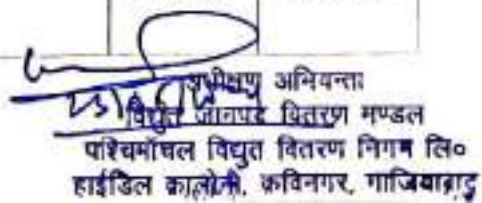 अधीक्षण अभियन्ता
विद्युत जानपद वितरण मण्डल
पश्चिमांचल विद्युत वितरण निगम लि०
हाईडिल कालोनी, कविनगर, गाजियाबाद